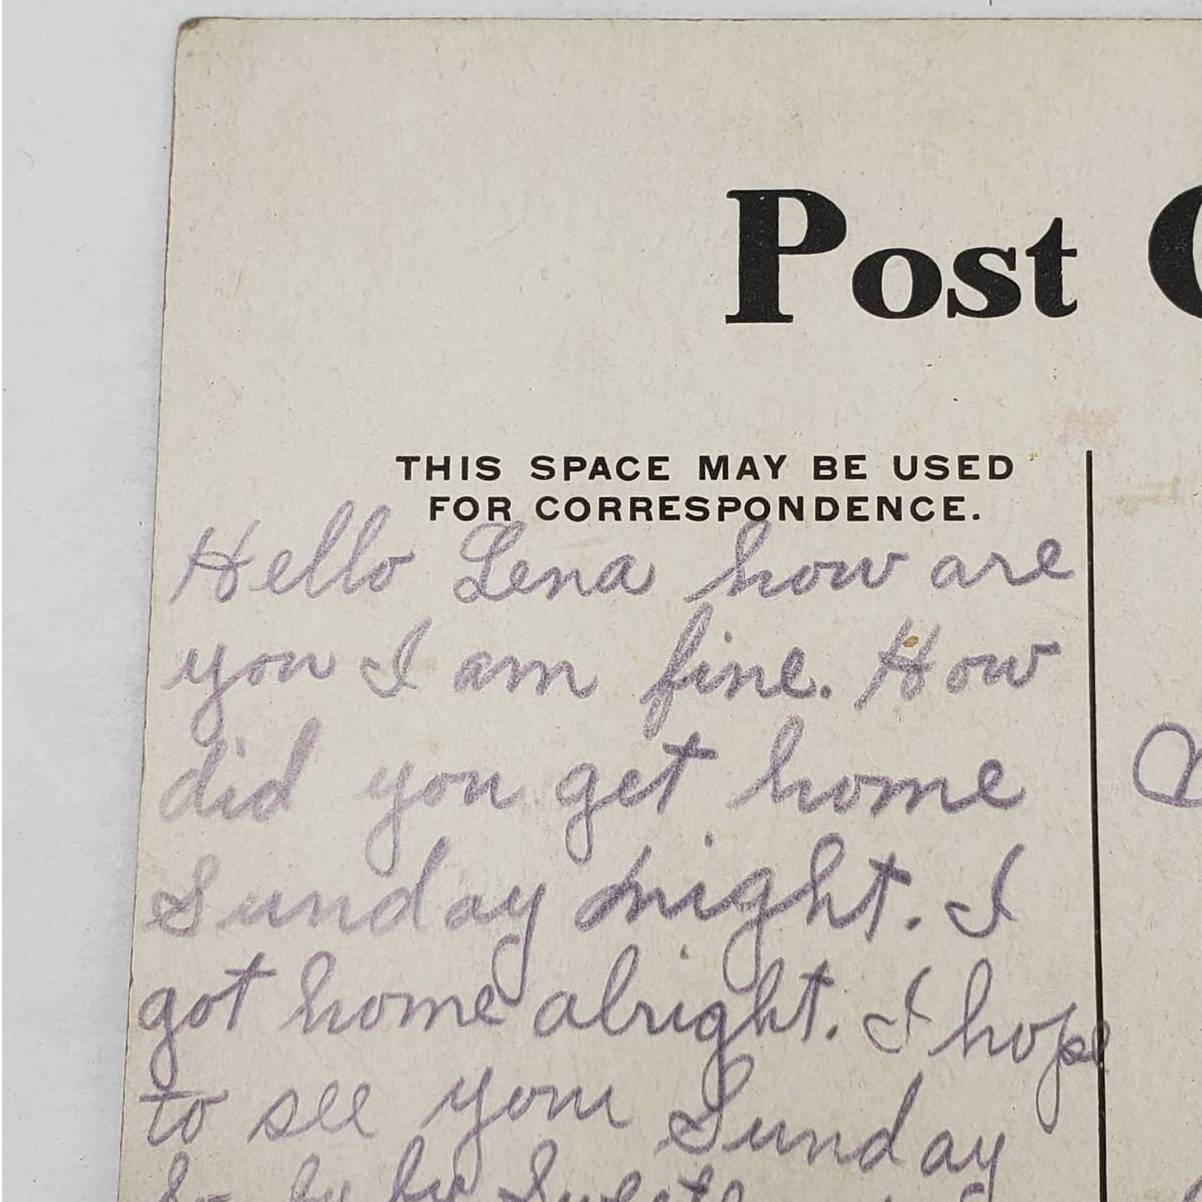 Post
THIS SPACE MAY BE USED
FOR CORRESPONDENCE.
Hello Lena how are
you I am fine. How
did you get home
Sunday night. I
got home alright. I hope
to see you Sunday